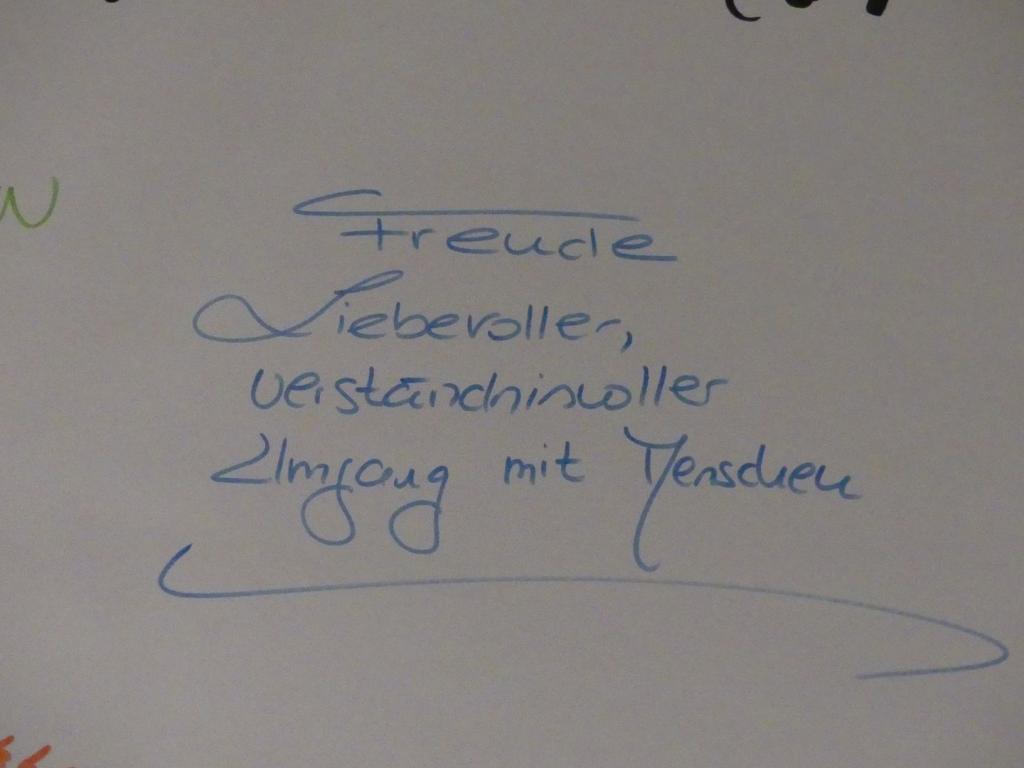 Freude
Liebevoller,
verständninvoller
Umgang mit Menschen